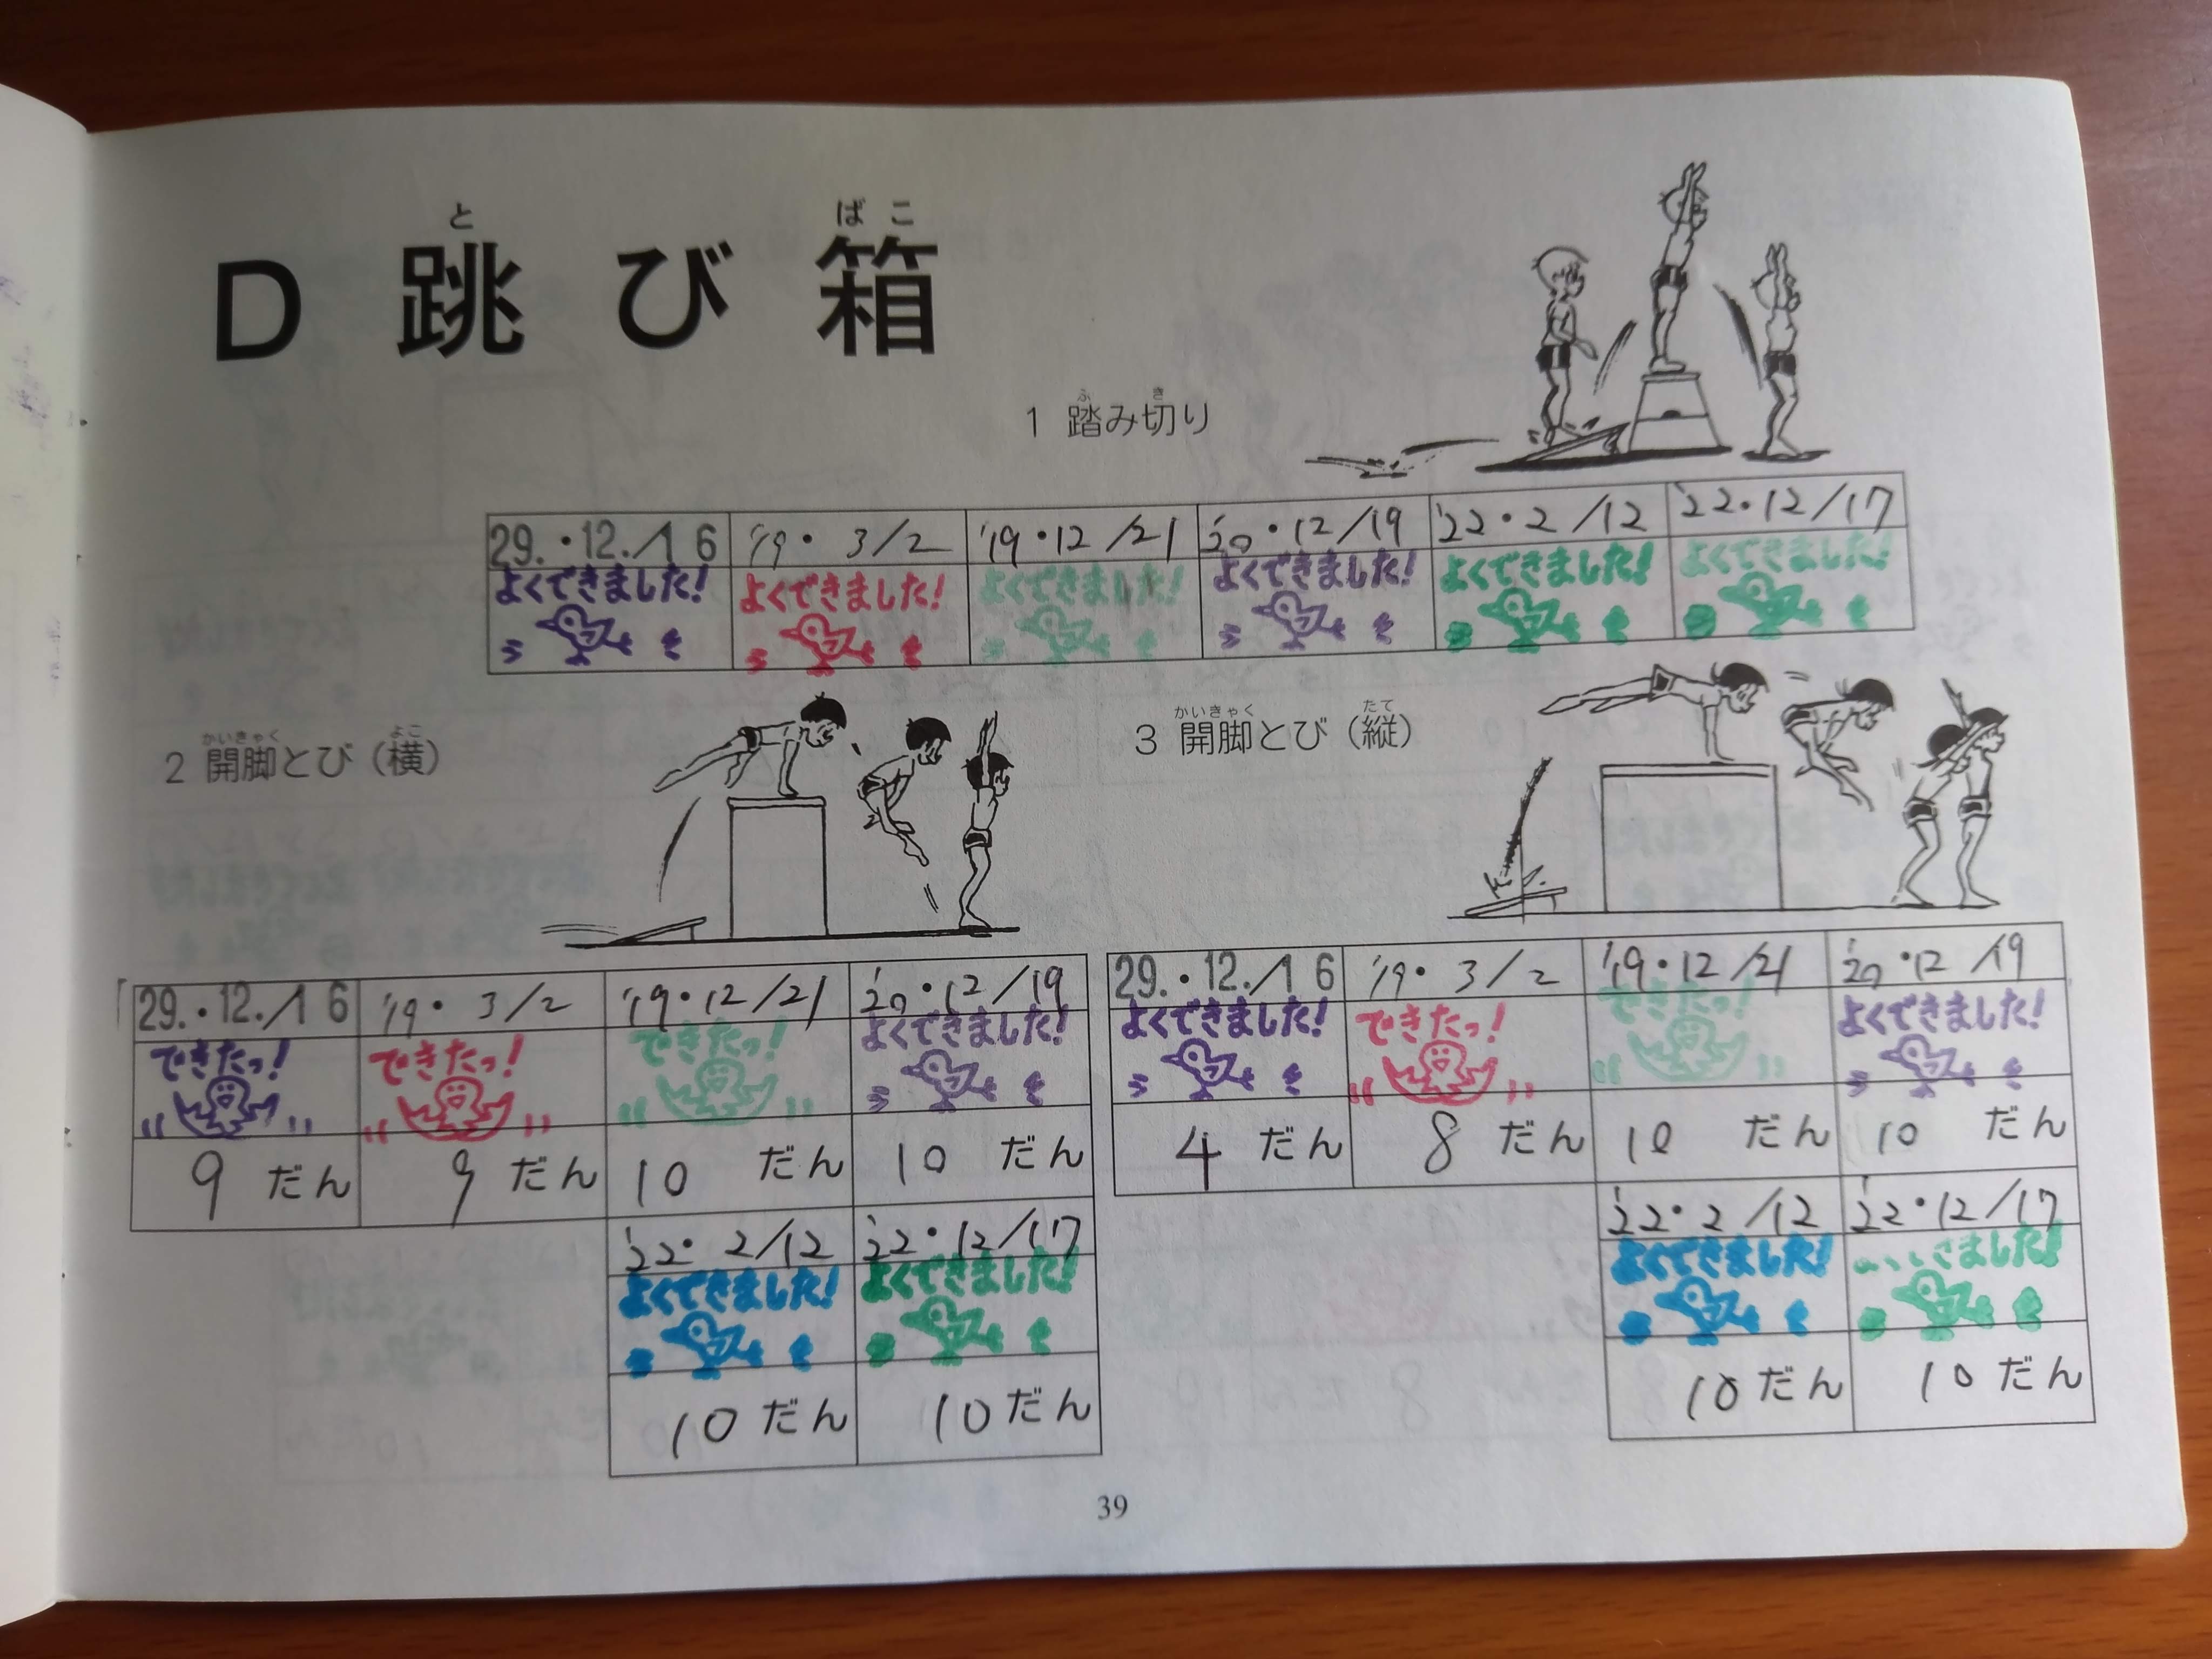 と ばこ
D 跳び箱
ふ き
1 踏み切り
29.・12./16 '19・3/2 '19・12/21 '20・12/19 '22・2/12 '22・12/17
よくできました! よくできました! よくできました! よくできました! よくできました! よくできました!
かいきゃく よこ
2 開脚とび（横）
29.・12./16 '19・3/2 '19・12/21 '20・12/19
できたっ! できたっ! できたっ! よくできました!
9 だん 9 だん 10 だん 10 だん
'22・2/12 '22・12/17
よくできました! よくできました!
10 だん 10 だん
かいきゃく たて
3 開脚とび（縦）
29.・12./16 '19・3/2 '19・12/21 '20・12/19
よくできました! できたっ! できたっ! よくできました!
4 だん 8 だん 10 だん 10 だん
'22・2/12 '22・12/17
よくできました! きました!
10 だん 10 だん
39